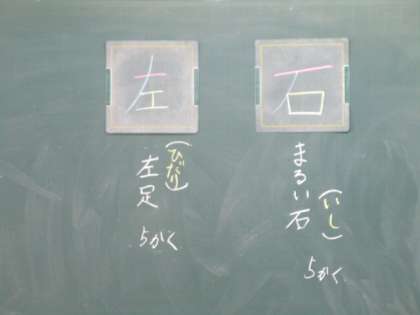 石
まるい石
(いし)
5かく
左
左足
(ひだり)
5かく